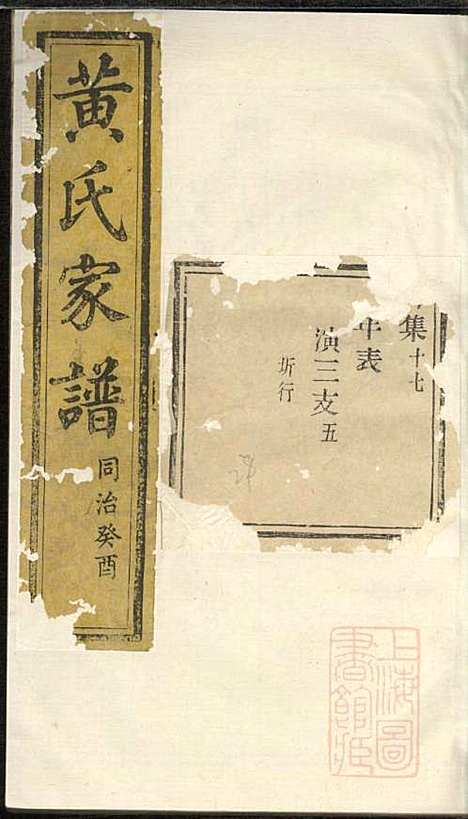 黄氏家譜
同治癸酉
集十七
年表
演三支五
圻行
24
上海圖
書館藏